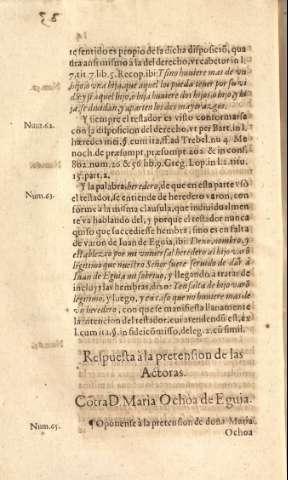 te sentido es propio de la dicha disposiciõ, qua
dra ansimismo a la del derecho, vt cabetor in l.
7. tit. 7. lib. 5. Recop. ibi: Y sino huuiere mas de vn
hijo, ò vna hija, que aquel los pueda tener por su vi
da: y si aquel hijo, ò hija huuiere dos hijos, ò hijo y hi
ja, se diuidan, y aparten los dos mayorazgos.
Num. 62. Y siempre el testador es visto conformarse
con la disposicion del derecho, vt per Bart. in l.
heredes mei, §. cum ita, ff. ad Trebel. nu. 4. Me
noch. de præsumpt. præsumpt. 202. & in cons.
802. num. 26. & 56. lib. 9. Greg. Lop. in l. 2. titu.
15. part. 2.
Num. 63. Y la palabra, heredero, de que en esta parte vsó
el testador, se entiende de heredero varon, con-
forme à la misma clausula, que indiuidualmen
te va hablando del, y porque el testador nunca
quiso que sucediesse hembra, sino es en falta
de varon de Iuan de Eguia, ibi: Dexo, nombro, y
establezco por mi vniuersal heredero al hijo varõ
legitimo que nuestro Señor fuere seruido de dar à
Iuan de Eguia mi sobrino, y llegando à tratar de
incluyr las hembras, dixo: En falta de hijo varõ
legitimo, y luego, y en caso que no huuiere mas de
vn heredero, con que se manifiesta llanamente
la intencion del testador, cui attendendũ est, ex
l. cum ita, §. in fideicõmisso, de leg. 2. cũ simil.
Respuesta à la pretension de las
Actoras.
Cõtra D. Maria Ochoa de Eguia.
Num. 65. ¶ Oponense à la pretension de doña Maria
Ochoa